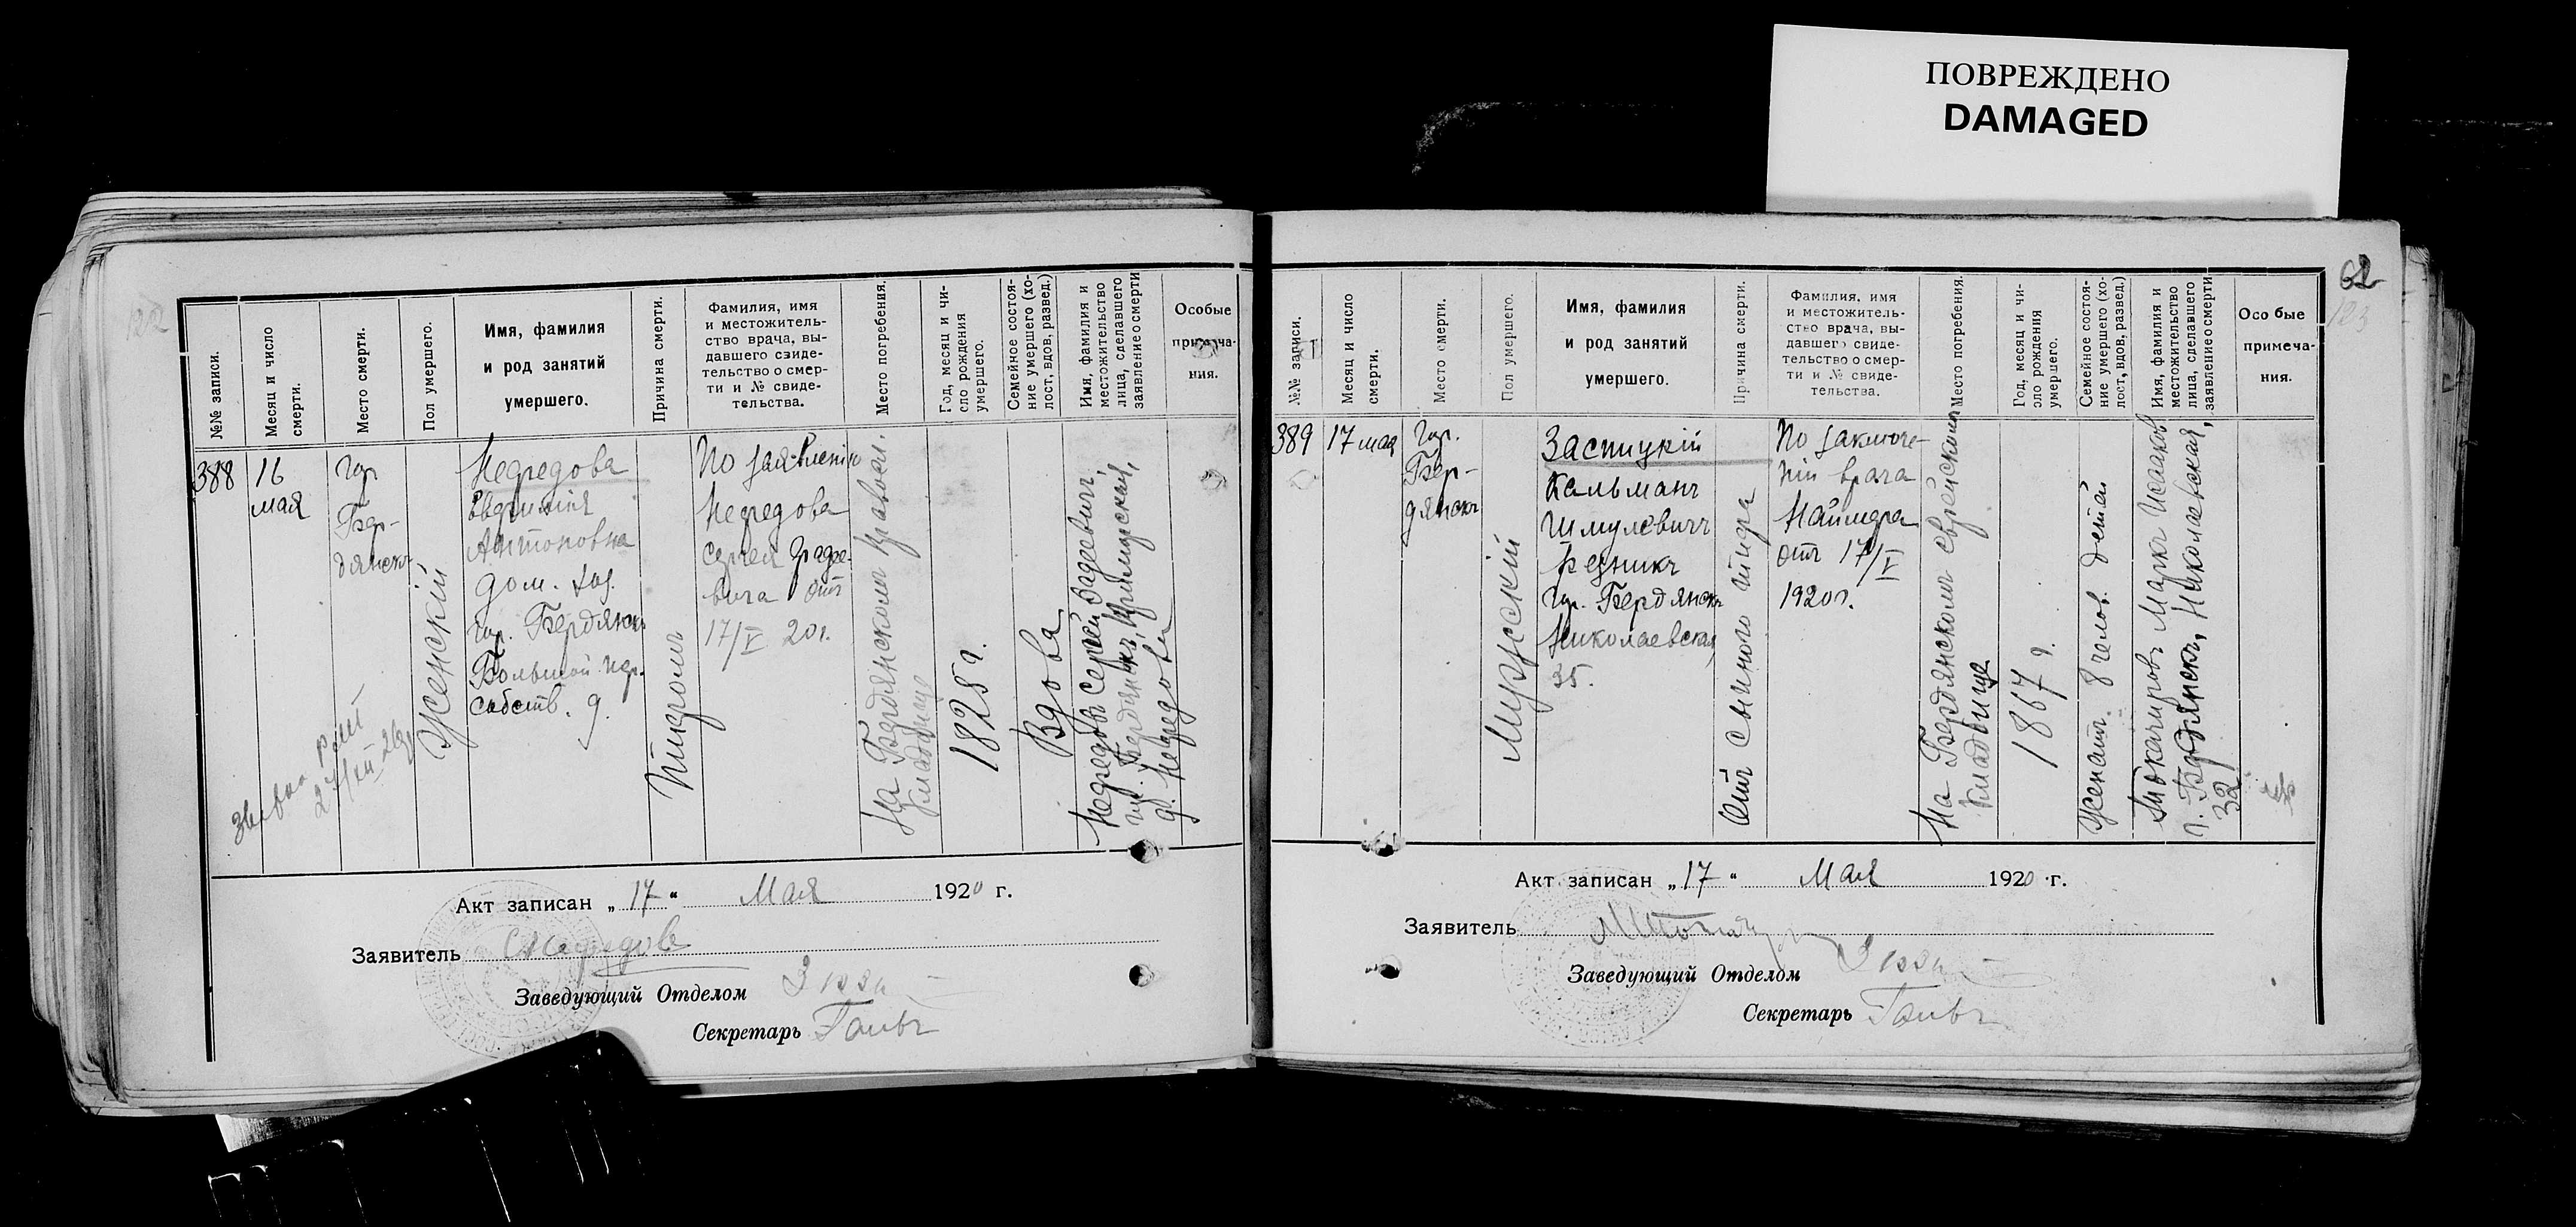 ПОВРЕЖДЕНО
DAMAGED
№№ записи.
Месяц и число
смерти.
Место смерти.
Пол умершего.
Имя, фамилия
и род занятий
умершего.
Причина смерти.
Фамилия, имя
и местожитель-
ство врача, вы-
давшего свиде-
тельство о смер-
ти и № свиде-
тельства.
Место погребения.
Год, месяц и чи-
сло рождения
умершего.
Семейное состоя-
ние умершего (хо-
лост, вдов, развед.)
Имя, фамилия и
местожительство
лица, сделавшего
заявление о смерти
Особые
примеча-
ния.
388
16
мая
гор
Бер-
дянскъ
Женскій
Нефедова
Евфимія
Антоновна
дом. хоз.
гор. Бердянскъ
собств. д.
По заявленію
Нефедова
Сергея
вича отъ
17/V 20 г.
На Бердянскомъ правосл.
кладбище
1825 г.
Вдова
Нефедовъ Сергей
гор. Бердянскъ, Приморская,
д. Нефедовой
27/XII
Акт записан „17“ Мая 1920 г.
Заявитель
Заведующий Отделом
Секретарь
62
123
№№ записи.
Месяц и число
смерти.
Место смерти.
Пол умершего.
Имя, фамилия
и род занятий
умершего.
Причина смерти.
Фамилия, имя
и местожитель-
ство врача, вы-
давшего свиде-
тельство о смер-
ти и № свиде-
тельства.
Место погребения.
Год, месяц и чи-
сло рождения
умершего.
Семейное состоя-
ние умершего (хо-
лост, вдов, развед.)
Имя, фамилия и
местожительство
лица, сделавшего
заявление о смерти
Особые
примеча-
ния.
389
17 мая
Гор.
Бер-
дянскъ
Мужскій
Заспицкій
Кальманъ
Шмулевичъ
Резникъ
гор. Бердянскъ
Николаевская,
35.
Отъ сыпного тифа
По заключе-
нію врача
отъ 17/V
1920 г.
На Бердянскомъ еврейскомъ
кладбище
1867 г.
Женатъ. 8 челов. детей
Маркъ Исааков.
г. Бердянскъ, Николаевская,
32
Акт записан „17“ Мая 1920 г.
Заявитель
Заведующий Отделом
Секретарь